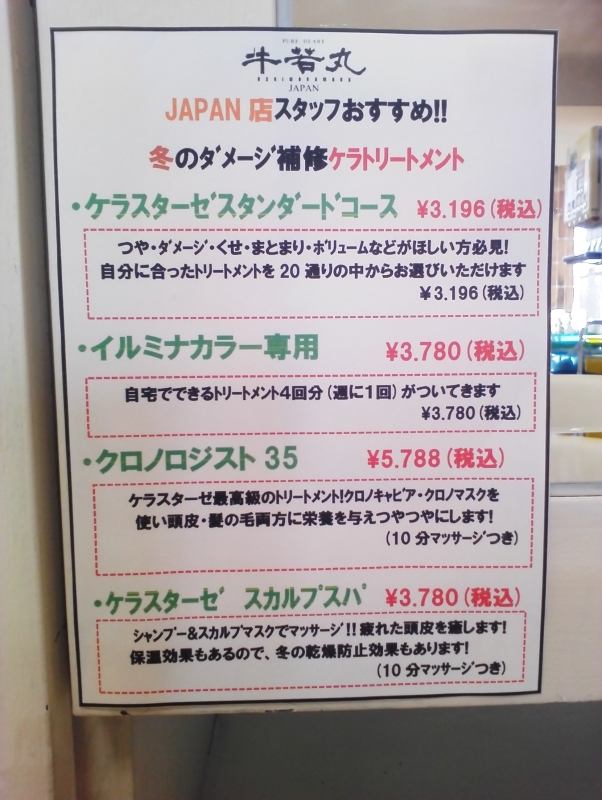 PURE HEART
牛若丸
USHIWAKAMARU
JAPAN
JAPAN 店スタッフおすすめ!!
冬のダメージ補修ケラトリートメント
・ケラスターゼスタンダードコース ¥3.196(税込)
つや・ダメージ・くせ・まとまり・ボリュームなどがほしい方必見!
自分に合ったトリートメントを 20 通りの中からお選びいただけます
¥3.196(税込)
・イルミナカラー専用 ¥3.780(税込)
自宅でできるトリートメント4回分(週に1回)がついてきます
¥3.780(税込)
・クロノロジスト 35 ¥5.788(税込)
ケラスターゼ最高級のトリートメント!クロノキャビア・クロノマスクを
使い頭皮・髪の毛両方に栄養を与えつやつやにします!
(10 分マッサージつき)
・ケラスターゼ スカルプスパ ¥3.780(税込)
シャンプー&スカルプマスクでマッサージ!!疲れた頭皮を癒します!
保温効果もあるので、冬の乾燥防止効果もあります!
(10 分マッサージつき)